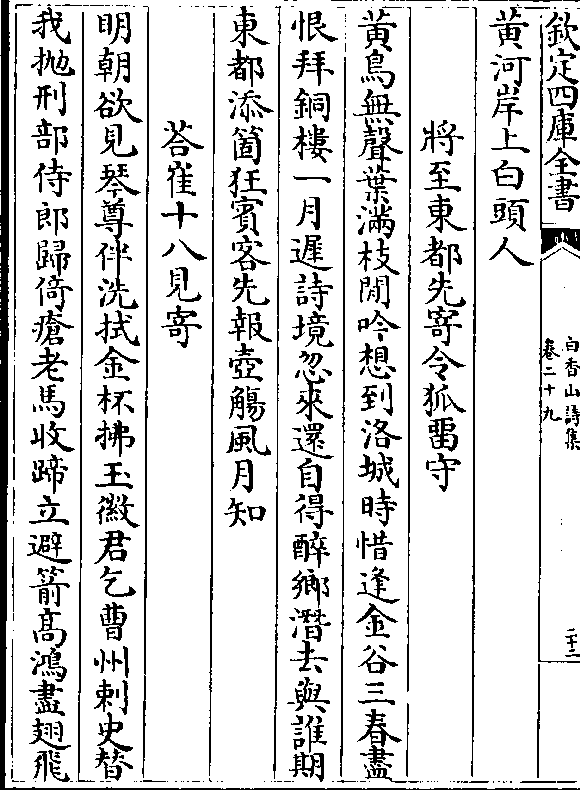 欽定四庫全書
白香山詩集
卷二十九
二十二
黄河岸上白頭人
將至東都先寄令狐畱守
黄鳥無聲葉滿枝閒吟想到洛城時惜逢金谷三春盡
恨拜銅樓一月遲詩境忽來還自得醉鄉潛去與誰期
東都添箇狂賓客先報壺觴風月知
荅崔十八見寄
明朝欲見琴尊伴洗拭金杯拂玉徽君乞曹州刺史替
我抛刑部侍郎歸倚瘡老馬收蹄立避箭高鴻盡翅飛